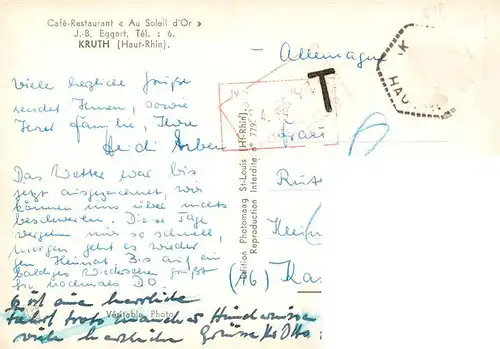 Café-Restaurant « Au Soleil d'Or »
J.-B. Eggert, Tél. : 6.
KRUTH (Haut-Rhin).
Viele herzliche Grüße
sendet Ihnen, sowie
Ihrer Familie, Ihre
Heidi
Das Wetter war bis
jetzt ausgezeichnet, wir
können uns über nichts
beschweren. Diese Tage
vergehen mir so schnell,
morgen geht es wieder
gen Heimat. Bis auf ein
baldiges Wiedersehen grüßt
Sie nochmals D.O.
Es ist eine herrliche
Fahrt trotz mancher Hindernisse
viele herzliche Grüsse
Véritable Photo
Edition Photomaag St-Louis (Ht-Rhin)
Reproduction Interdite n° 779
T
Allemagne
Frau
HAU
(16) Ka